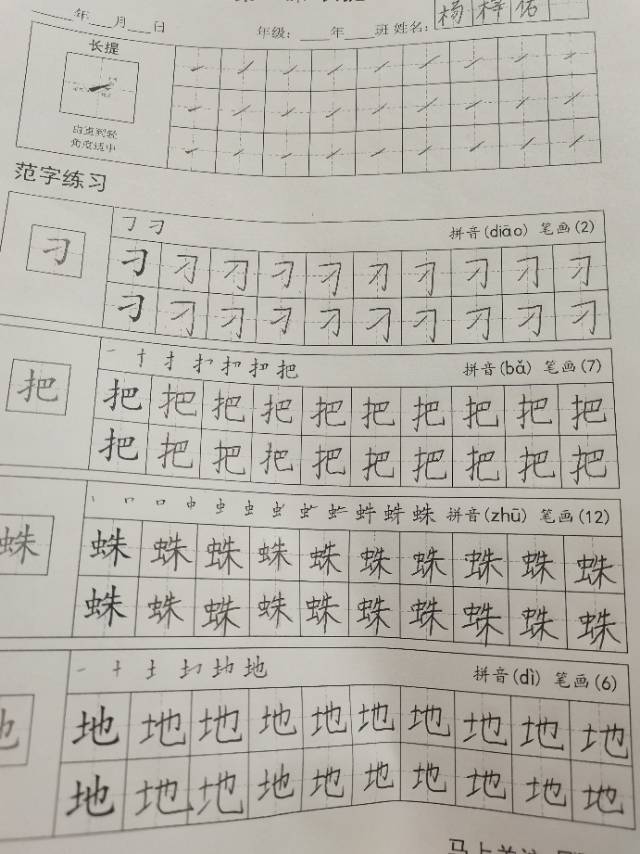 年___月___日 年级：___年___班 姓名：杨梓佑
长提
由重到轻
角度适中
范字练习
刁 丁刁 拼音(diāo) 笔画(2)
刁 刁 刁 刁 刁 刁 刁 刁 刁 刁
刁 刁 刁 刁 刁 刁 刁 刁 刁 刁
把 一 十 扌 把 拼音(bǎ) 笔画(7)
把 把 把 把 把 把 把 把 把 把
把 把 把 把 把 把 把 把 把 把
蛛 丨 口 口 中 虫 虫 蛛 拼音(zhū) 笔画(12)
蛛 蛛 蛛 蛛 蛛 蛛 蛛 蛛 蛛 蛛
蛛 蛛 蛛 蛛 蛛 蛛 蛛 蛛 蛛 蛛
地 一 十 土 地 拼音(dì) 笔画(6)
地 地 地 地 地 地 地 地 地 地 地
地 地 地 地 地 地 地 地 地 地 地